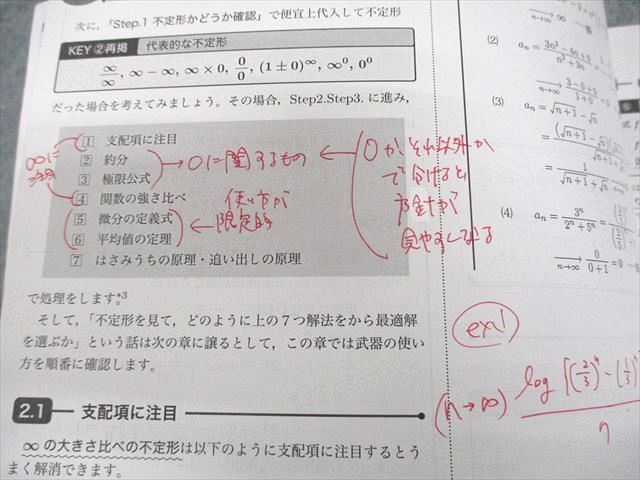 次に,「Step.1 不定形かどうか確認」で便宜上代入して不定形
KEY ②再掲 代表的な不定形
∞/∞, ∞ − ∞, ∞ × 0, 0/0, (1 ± 0)^∞, ∞^0, 0^0
だった場合を考えてみましょう。その場合, Step2.Step3. に進み,
1 支配項に注目
2 約分
3 極限公式
4 関数の強さ比べ
5 微分の定義式
6 平均値の定理
7 はさみうちの原理・追い出しの原理
0に関するもの
使い方が
限定的
0か、それ以外か
で分けると
方針が
見やすくなる
で処理をします。*3
そして,「不定形を見て, どのように上の7つ解法をから最適解
を選ぶか」という話は次の章に譲るとして, この章では武器の使い
方を順番に確認します。
2.1 支配項に注目
∞ の大きさ比べの不定形は以下のように支配項に注目するとう
まく解消できます。
n→∞
(2) a_n = 3n² − 4n + 5 / n² + 3n
n→∞ 3 − 0 + 0 / 1 + 0
(3) a_n = √n+1 − √n
(4) a_n = 3^n / 2^n + 5^n
n→∞ 0 / 0 + 1 = 0
ex!
(n→∞) log [(2/3)^n − (1/3)^n
n